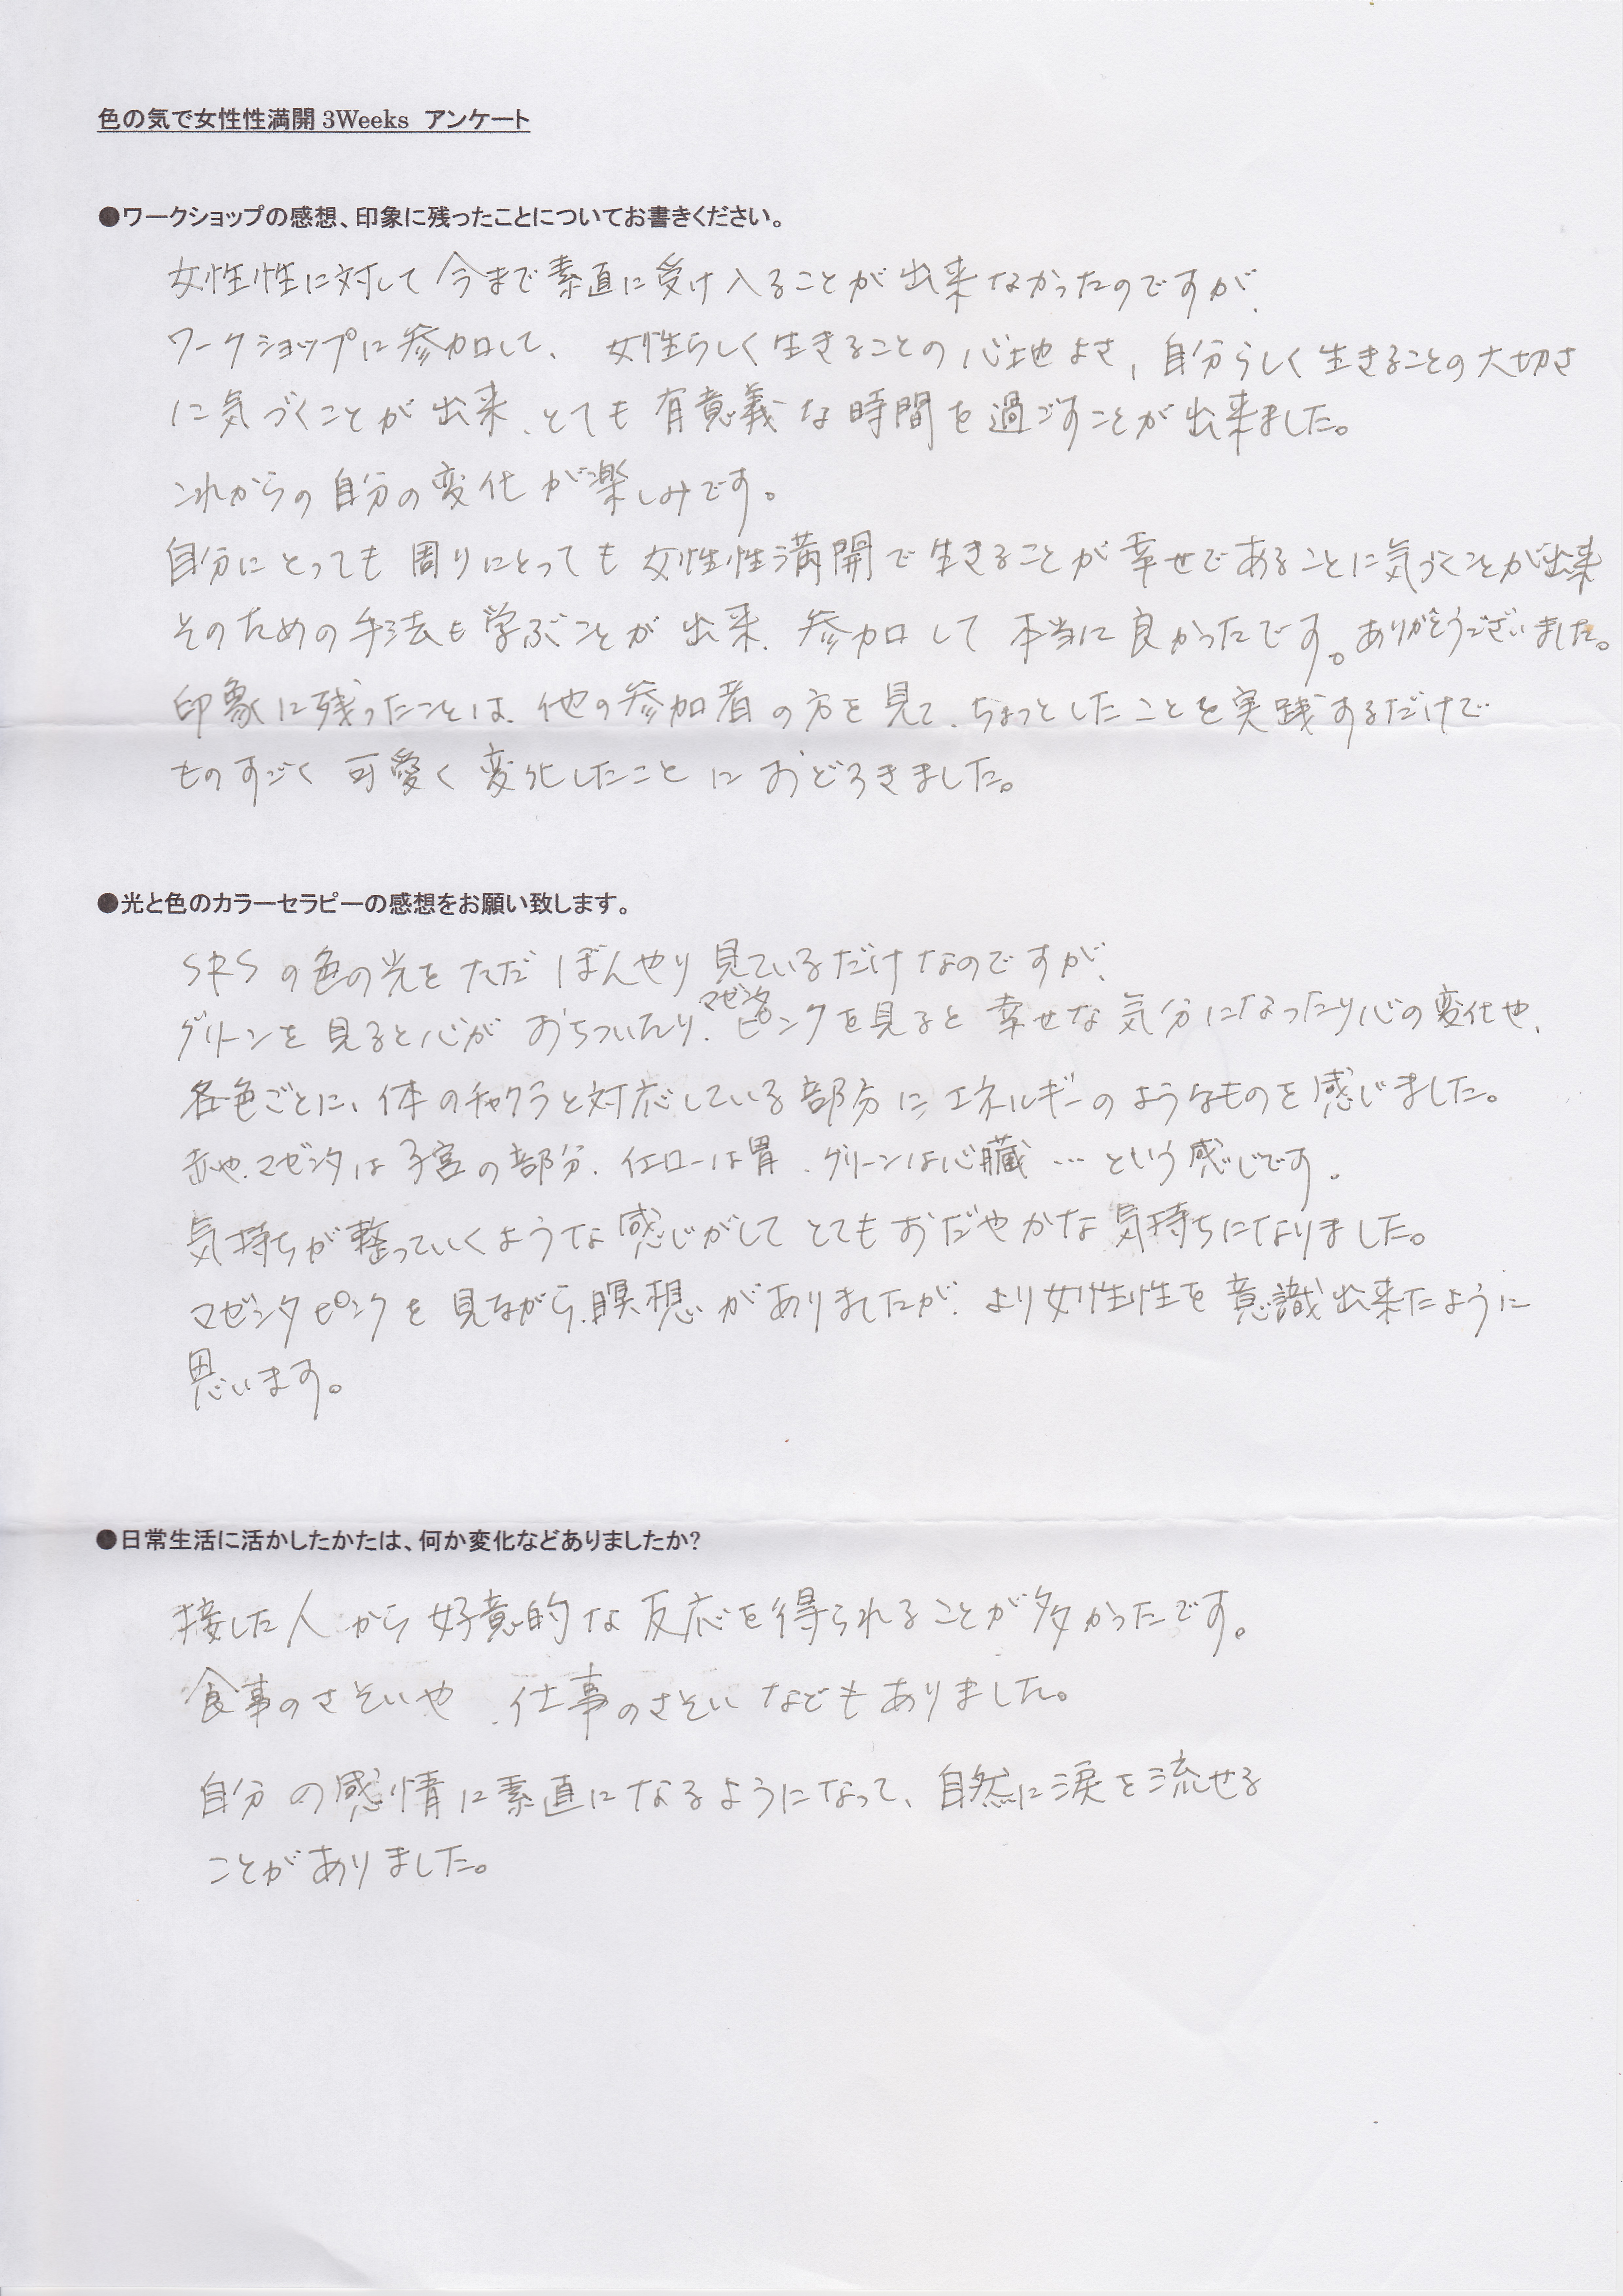 色の気で女性性満開3Weeks　アンケート
●ワークショップの感想、印象に残ったことについてお書きください。
女性性に対して今まで素直に受け入ることが出来なかったのですが、
ワークショップに参加して、女性らしく生きることの心地よさ、自分らしく生きることの大切さ
に気づくことが出来、とても有意義な時間を過ごすことが出来ました。
これからの自分の変化が楽しみです。
自分にとっても周りにとっても女性性満開で生きることが幸せであることに気づくことが出来
そのための手法も学ぶことが出来、参加して本当に良かったです。ありがとうございました。
印象に残ったことは、他の参加者の方を見て、ちょっとしたことを実践するだけで
ものすごく可愛く変化したことにおどろきました。
●光と色のカラーセラピーの感想をお願い致します。
SRSの色の光をただぼんやり見ているだけなのですが、
グリーンを見ると心がおちついたり、マゼンタピンクを見ると幸せな気分になったり心の変化や、
各色ごとに、体のチャクラと対応している部分にエネルギーのようなものを感じました。
赤や、マゼンタは子宮の部分、イエローは胃、グリーンは心臓…という感じです。
気持ちが整っていくような感じがしてとてもおだやかな気持ちになりました。
マゼンタピンクを見ながら、瞑想がありましたが、より女性性を意識出来たように
思います。
●日常生活に活かしたかたは、何か変化などありましたか?
接した人から好意的な反応を得られることが多かったです。
食事のさそいや、仕事のさそいなどもありました。
自分の感情に素直になるようになって、自然に涙を流せる
ことがありました。